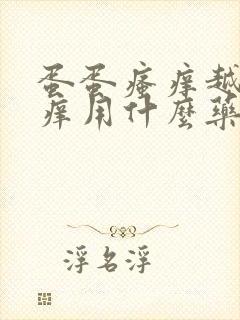 蛋蛋瘙痒越
痒用什麼藥
浮名浮